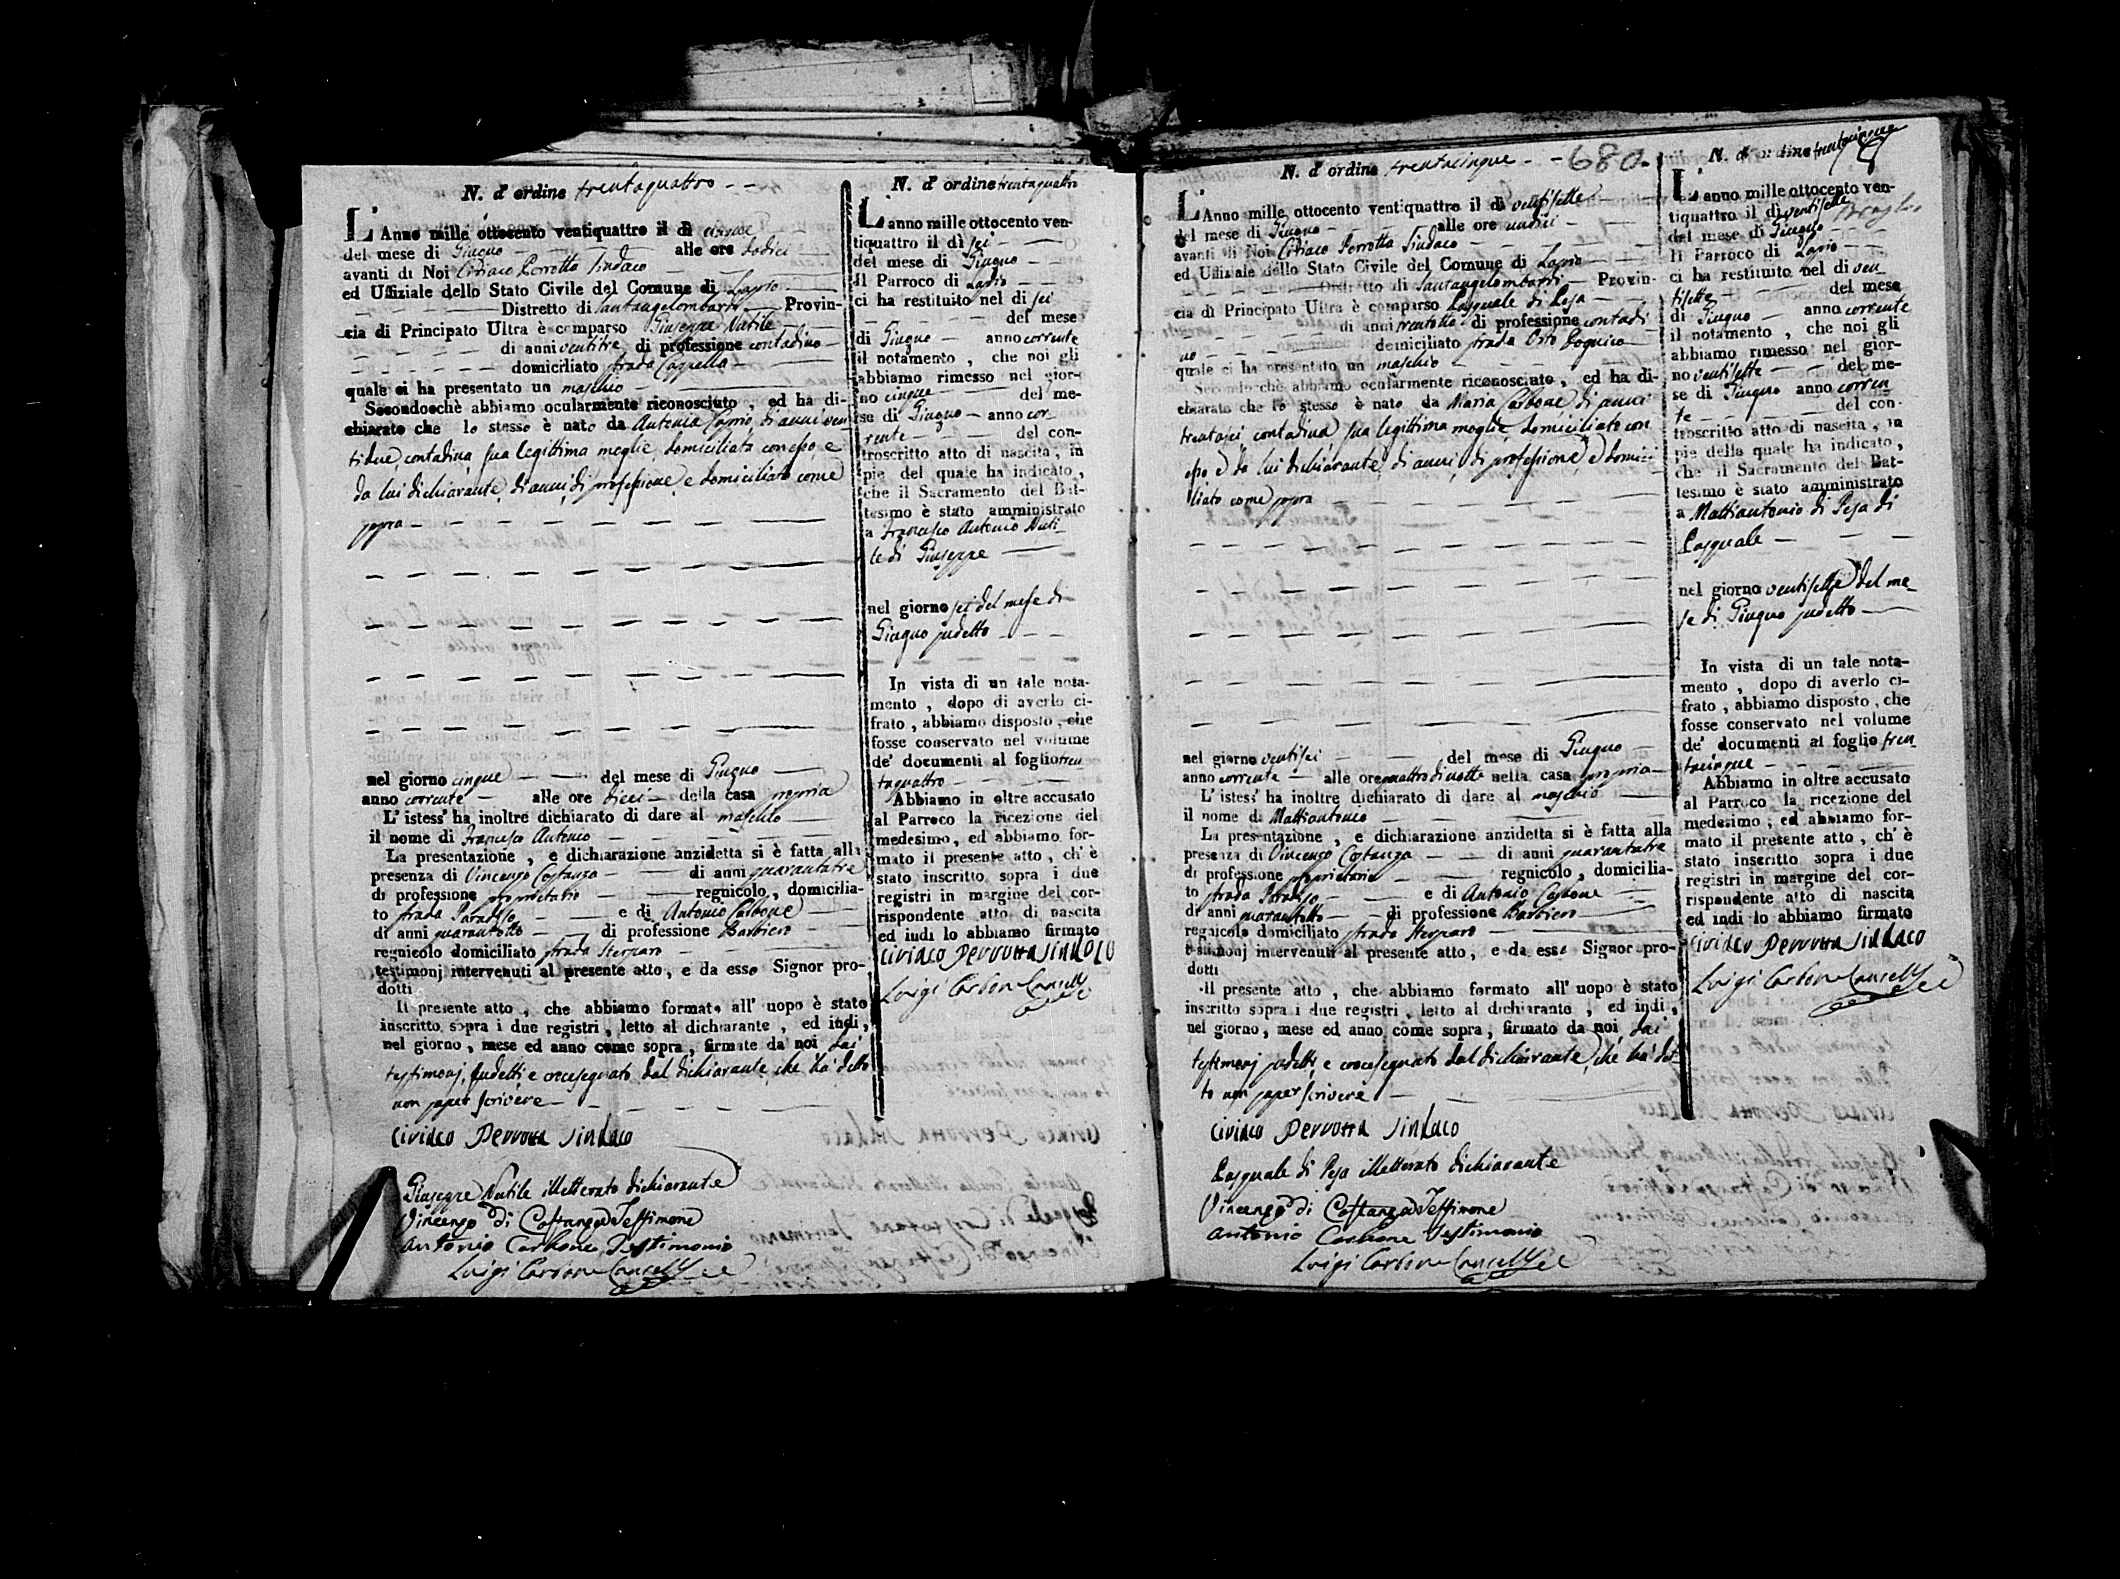 N. d' ordine trentaquattro
L'Anno mille ottocento ventiquattro il dì cinque
del mese di Giugno alle ore dodici
avanti di Noi Ciriaco Perrotta Sindaco
ed Uffiziale dello Stato Civile del Comune di Lapio
Distretto di Santangelombardi Provin-
cia di Principato Ultra è comparso Giuseppe Nutile
di anni ventitre di professione contadino
domiciliato strada Cappella
quale ci ha presentato un maschio
Secondocchè abbiamo ocularmente riconosciuto, ed ha di-
chiarato che lo stesso è nato da Antonia Caprio, di anni ven
tidue, contadina, sua legittima moglie, domiciliata con esso e
da lui dichiarante, di anni, di professione, e domiciliato come
sopra
nel giorno cinque del mese di Giugno
anno corrente alle ore dieci della casa propria
L' istess' ha inoltre dichiarato di dare al maschio
il nome di Francesco Antonio
La presentazione, e dichiarazione anzidetta si è fatta alla
presenza di Vincenzo Costanza di anni quarantatre
di professione proprietario regnicolo, domicilia-
to strada Paradiso e di Antonio Carbone
di anni quarantotto di professione Barbiere
regnicolo domiciliato strada Sterparo
testimonj intervenuti al presente atto, e da esso Signor pro-
dotti
Il presente atto, che abbiamo formato all' uopo è stato
inscritto sopra i due registri, letto al dichiarante, ed indi,
nel giorno, mese ed anno come sopra, firmato da noi dai
testimonj sudetti, e crocesegnato dal dichiarante, che ha detto
non saper scrivere
Ciriaco Perrotta Sindaco
Giuseppe Nutile illetterato dichiarante
Vincenzo di Costanza Testimone
Antonio Carbone Testimonio
Luigi Carbone Cancelliere
N. d' ordine trentaquattro
L'anno mille ottocento ven-
tiquattro il dì sei
del mese di Giugno
Il Parroco di Lapio
ci ha restituito nel dì sei
del mese
di Giugno anno corrente
il notamento, che noi gli
abbiamo rimesso nel gior-
no cinque del me-
se di Giugno anno cor
rente del con-
troscritto atto di nascita, in
piè del quale ha indicato,
che il Sacramento del Bat-
tesimo è stato amministrato
a Francesco Antonio Nuti
le di Giuseppe
nel giorno sei del mese di
Giugno sudetto
In vista di un tale nota-
mento, dopo di averlo ci-
frato, abbiamo disposto, che
fosse conservato nel volume
de' documenti al foglio tren
taquattro
Abbiamo in oltre accusato
al Parroco la ricezione del
medesimo, ed abbiamo for-
mato il presente atto, ch' è
stato inscritto sopra i due
registri in margine del cor-
rispondente atto di nascita
ed indi lo abbiamo firmato
Ciriaco Perrotta Sindaco
Luigi Carbone Cancelliere
N. d' ordine trentacinque 680
L'Anno mille ottocento ventiquattro il dì ventisette
del mese di Giugno alle ore undici
avanti di Noi Ciriaco Perrotta Sindaco
ed Uffiziale dello Stato Civile del Comune di Lapio
Distretto di Santangelombardi Provin-
cia di Principato Ultra è comparso Pasquale di Pesa
di anni trentotto di professione contadi
no domiciliato strada Orto
quale ci ha presentato un maschio
Secondocchè abbiamo ocularmente riconosciuto, ed ha di-
chiarato che lo stesso è nato da Maria Carbone di anni
trentasei, contadina, sua legittima moglie, domiciliato con
esso e da lui dichiarante, di anni, di professione, e domici-
liato come sopra
nel giorno ventisei del mese di Giugno
anno corrente alle ore quattro di notte nella casa propria
L' istess' ha inoltre dichiarato di dare al maschio
il nome di Mattiantonio
La presentazione, e dichiarazione anzidetta si è fatta alla
presenza di Vincenzo Costanza di anni quarantatre
di professione proprietario regnicolo, domicilia-
to strada Paradiso e di Antonio Carbone
di anni quarantotto di professione Barbiere
regnicolo domiciliato strada Sterparo
testimonj intervenuti al presente atto, e da esso Signor pro-
dotti
Il presente atto, che abbiamo formato all' uopo è stato
inscritto sopra i due registri, letto al dichiarante, ed indi,
nel giorno, mese ed anno come sopra, firmato da noi dai
testimonj sudetti, e crocesegnato dal dichiarante, che ha det
to non saper scrivere
Ciriaco Perrotta Sindaco
Pasquale di Pesa illetterato dichiarante
Vincenzo di Costanza Testimone
Antonio Carbone Testimonio
Luigi Carbone Cancelliere
N. d' ordine trentacinque
L'anno mille ottocento ven-
tiquattro il dì ventisette
del mese di Giugno
Il Parroco di Lapio
ci ha restituito nel dì ven
tisette del mese
di Giugno anno corrente
il notamento, che noi gli
abbiamo rimesso nel gior-
no ventisette del me-
se di Giugno anno corren
te del con-
troscritto atto di nascita, in
piè della quale ha indicato,
che il Sacramento del Bat-
tesimo è stato amministrato
a Mattiantonio di Pesa di
Pasquale
nel giorno ventisette del me
se di Giugno sudetto
In vista di un tale nota-
mento, dopo di averlo ci-
frato, abbiamo disposto, che
fosse conservato nel volume
de' documenti al foglio tren
tacinque
Abbiamo in oltre accusato
al Parroco la ricezione del
medesimo, ed abbiamo for-
mato il presente atto, ch' è
stato inscritto sopra i due
registri in margine del cor-
rispondente atto di nascita
ed indi lo abbiamo firmato
Ciriaco Perrotta Sindaco
Luigi Carbone Cancelliere